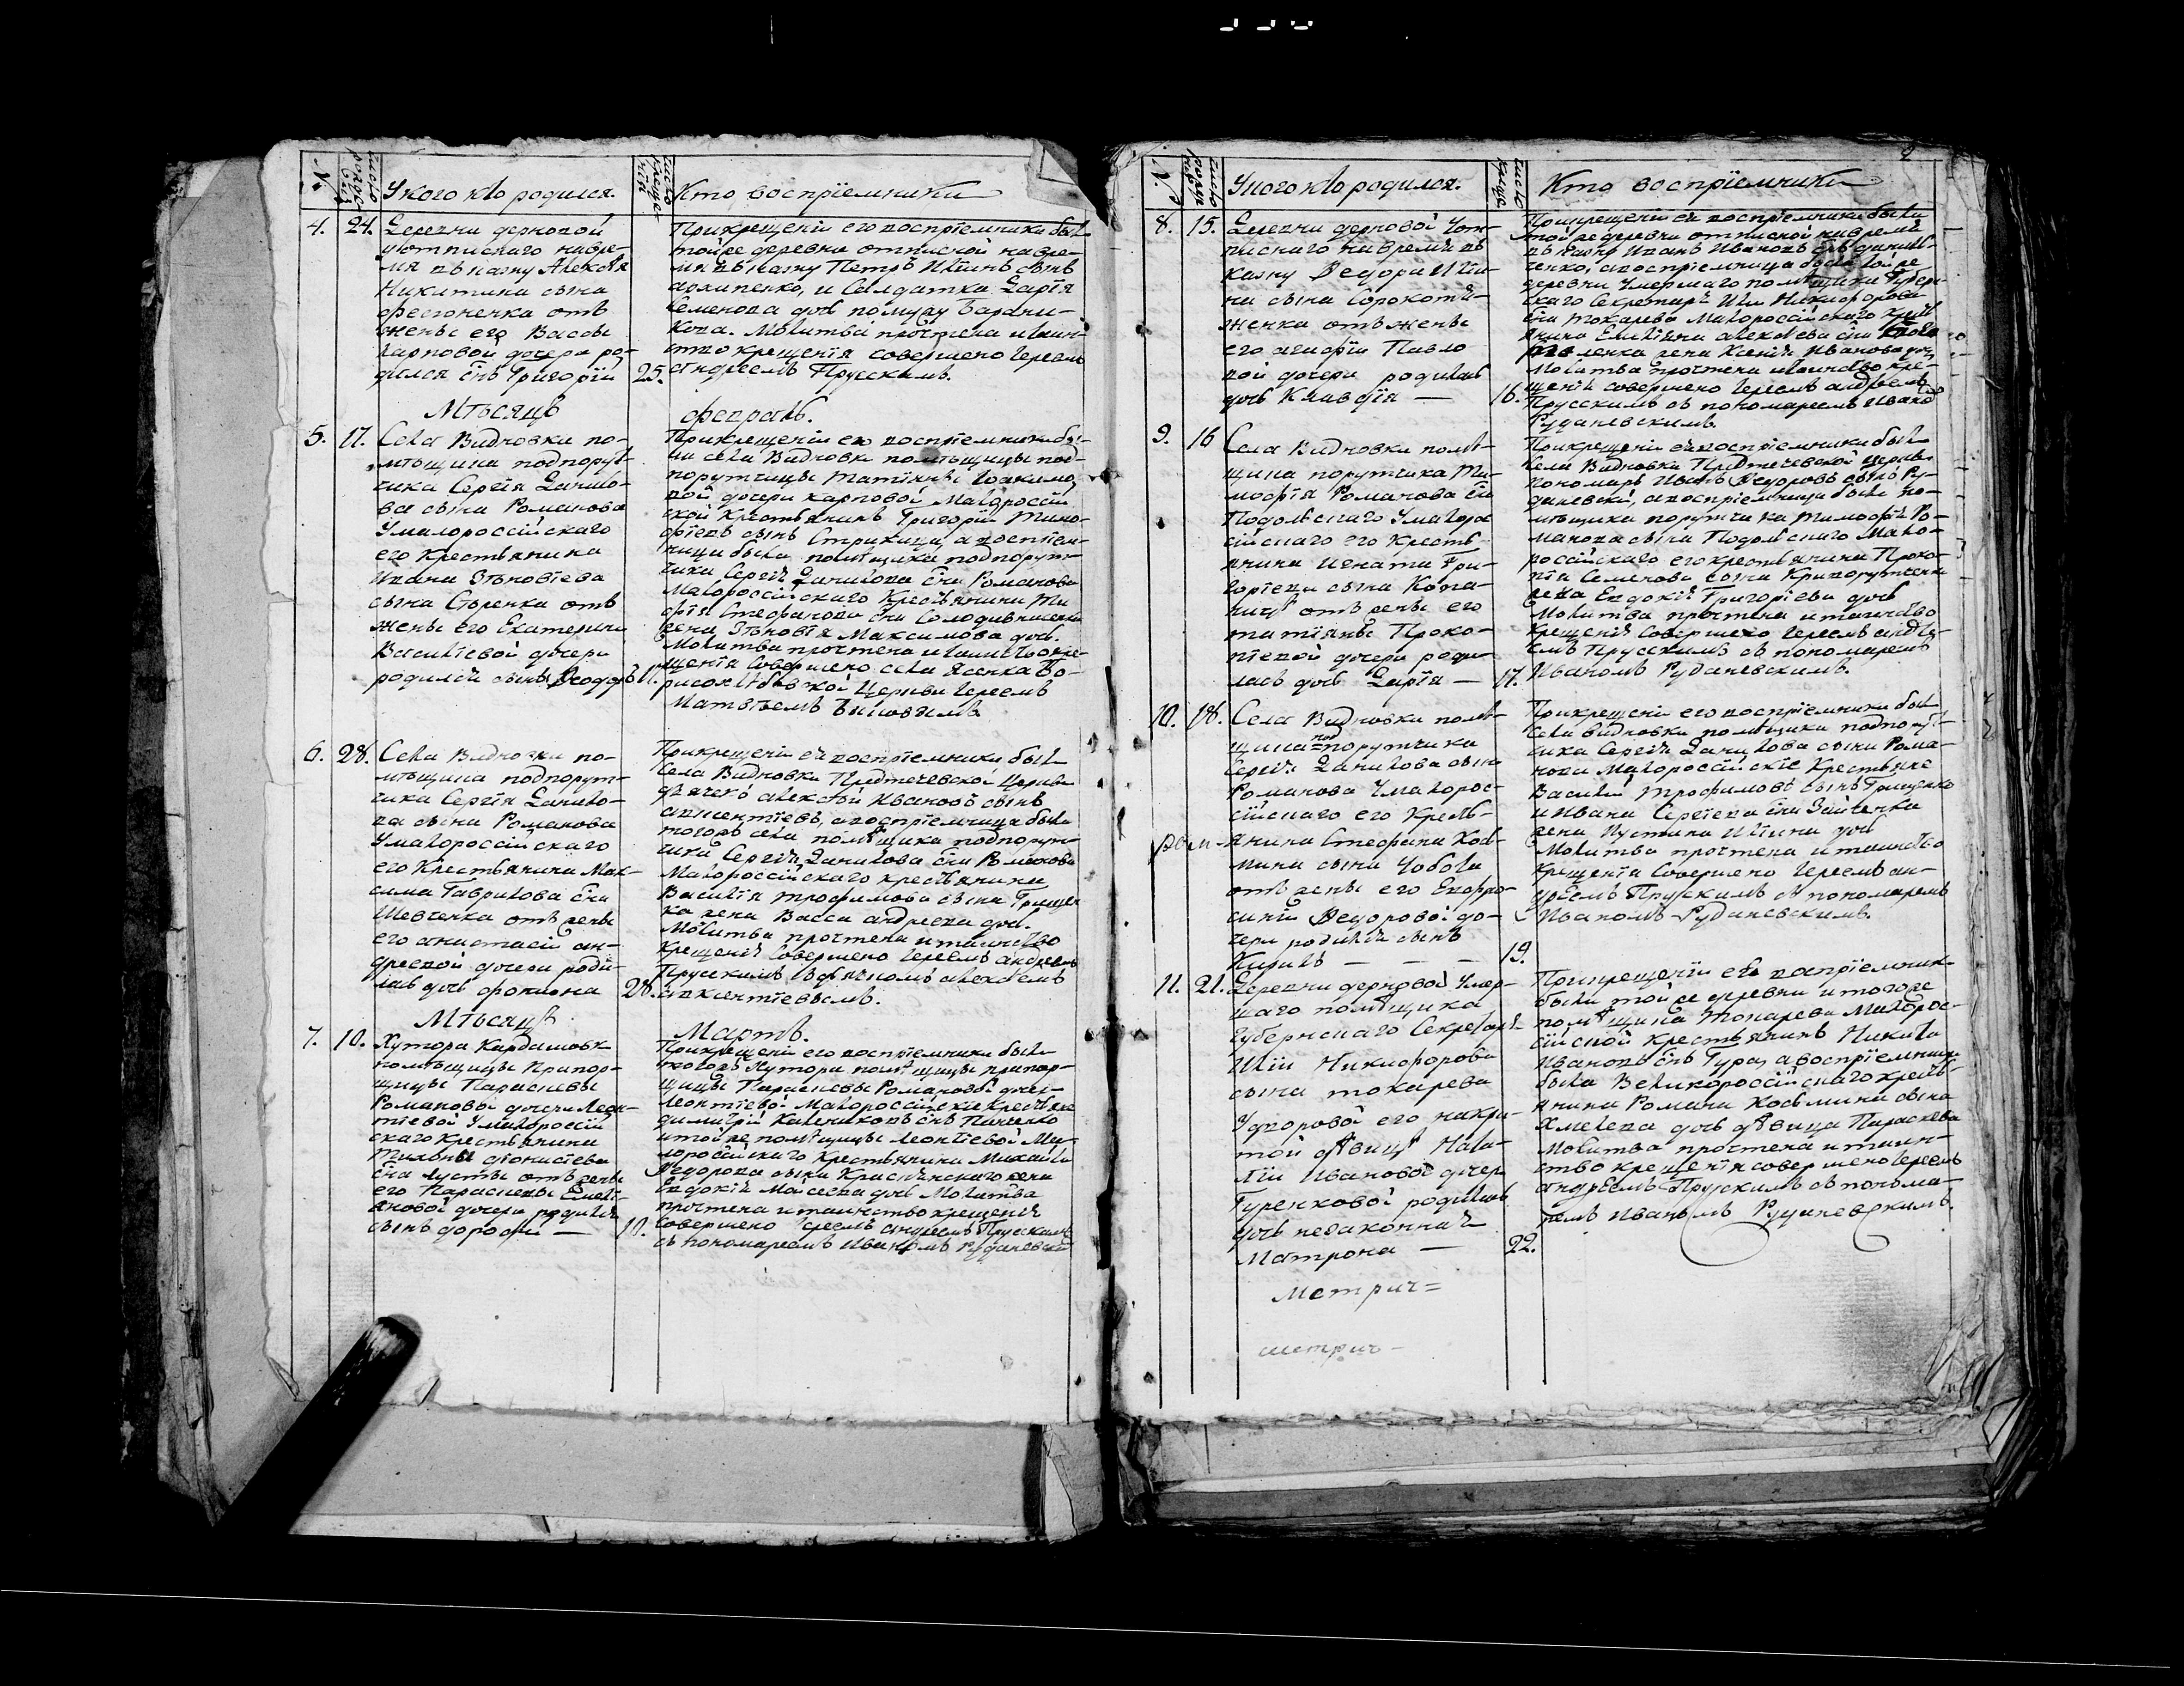 №
число рожде
У кого кто родился.
число крещен
Кто воспріемники
4. 24. Деревни дерновой
у отписнаго на вре-
мя въ казну Алексѣя
Никитина сына
отъ
жены его Вассы
Карповой дочери ро-
дился снъ Григорій 25.
При крещеніи его воспріемники были
той же деревни отписной на вре-
мя въ казну Петръ Ильинъ сынъ
архипенко, и Салдатка Дарія
Семенова дочь по мужу Барани-
кова. Молитва прочтена и таин-
ство крещенія совершено Іереемъ
андреемъ Прусскимъ.
Мѣсяцъ февраль.
5. 17. Села Видновки по-
мѣщика подпорут-
чика Сергія Данило-
ва сына Романова
У малороссійскаго
его крестьянина
Ивана Зѣновіева
сына отъ
жены его Екатерины
Василіевой дочери
родился сынъ Ѳеодоръ 17.
При крещеніи его воспріемники бы-
ли села Видновки помѣщицы под-
порутчицы Татіяны Іоакимо-
вой дочери карповой Малороссій
ской Крестьянинъ Григорій Тимо-
фіевъ сынъ Стрижица, а воспріем-
ница была помѣщика подпорут-
чика Сергія Данилова сна Романова
Малороссійскаго Крестьянина Ти
офія Стефанова сна
жена Зѣновія Максимова дочь.
Молитва прочтена и таинство кре-
щенія совершено села Ясенка Бо-
рисоглѣбской Церкви Іереемъ
Матвѣемъ
6. 28. Села Видновки по-
мѣщика подпорут-
чика Сергія Данило-
ва сына Романова
У малороссійскаго
его Крестьянина Мак-
сима Гаврилова сна
Шевченка отъ жены
его анистасіи ан-
дреевой дочери роди-
лась дочь фотиона 28.
При крещеніи ея воспріемники были
Села Видновки Предтечевской Церкви
дьячекъ алексѣй Ивановъ сынъ
авксентіевъ, а воспріемница была
тогожъ села помѣщика подпорут-
чика Сергія Данилова сна Романова
Малороссійскаго крестьянина
Василія трофимова сына Грищен
ка жена Васса андреева дочь.
Молитва прочтена и таинство
крещенія совершено Іереемъ андреемъ
Прусскимъ съ дьячкомъ алексѣемъ
авксентіевымъ.
Мѣсяцъ Мартъ.
7. 10. Хутора Кардашовк
помѣщицы Прапор-
щицы Параскевы
Романовой дочери Леон-
тіевой У малороссій
скаго крестьянина
Тихона
сна отъ жены
его Параскевы Емель-
яновой дочери родился
сынъ дорофей — 10.
При крещеніи его воспріемники были
тогожъ Хутора помѣщицы прапор-
щицы Параскевы Романовой дочери
Леонтіевой Малороссійскіе Крестьяне
димитрій снъ
и той же помѣщицы Леонтіевой Ма-
лороссійскаго Крестьянина Михаила
Ѳедорова сына жена
Евдокія Моисеева дочь Молитва
прочтена и таинство крещенія
совершено Іереемъ андреемъ Прусскимъ
съ пономаремъ Иваномъ Рудановски

№
число рожде
У кого кто родился.
число креще
Кто воспріемники
8. 15. Деревни дерновой У от-
писнаго на время въ
казну Ѳедора Ильи-
на сына Сорокотя-
женка отъ жены
его агафіи Павло
вой дочери родилась
дочь Клавдія — 16.
При крещеніи ея воспріемники были
той же деревни отписной на время
въ казну Иванъ Ивановъ снъ
ченко, а воспріемница была той же
деревни умершаго помѣщика Губерн-
скаго Секретаря Ильи Никифорова
сна Токарева Малороссійскаго крест
янина Емельяна алексѣева сна
жена Ксенія Иванова дочь
Молитва прочтена и таинство кре-
щенія совершено Іереемъ андреемъ
Прусскимъ съ пономаремъ Ивано
Рудановскимъ.
9. 16 Села Видновки помѣ-
щика порутчика Ти-
мофѣя Романова сна
Подольскаго У малорос
сійскаго его Кресть-
янина Игната Гри-
горіева сына
отъ жены его
татіяны Проко-
піевой дочери роди-
лась дочь Дарія — 17.
При крещеніи ея воспріемники были
Села Видновки Предтечевской Церкви
пономарь Иванъ Ѳедоровъ сынъ Ру-
дановскій, а воспріемница была по-
мѣщика порутчика Тимофѣя Ро-
манова сына Подольскаго Мало-
россійскаго его крестьянина Проко-
пія Семенова сына
жена Евдокія Григоріева дочь
Молитва прочтена и таинство
крещенія совершено Іереемъ андре-
емъ Прусскимъ съ пономаремъ
Иваномъ Рудановскимъ.
10. 18. Села Видновки помѣ-
щика подпорутчика
Сергія Данилова сына
Романова У малорос-
сійскаго его Кресть-
янина Стефана Козь-
мина сына Чобота
отъ жены его Евфро-
синіи Ѳедоровой до-
чери родился сынъ
Кирилъ — — — 19.
При крещеніи его воспріемники были
села видновки помѣщика подпорут-
чика Сергія Данилова сына Рома-
нова Малороссійскіе Крестьяне
Василій трофимовъ сынъ Грищенко
и Ивана Сергіева сна Зайченка
жена Іустина Ильина дочь
Молитва прочтена и таинство
крещенія совершено Іереемъ ан-
дреемъ Прусскимъ съ пономаремъ
Иваномъ Рудановскимъ.
11. 21. Деревни дерновой Умер-
шаго помѣщика
Губернскаго Секретаря
Ильи Никифорова
сына токарева
У дворовой его накри-
той дѣвицы Ната-
ліи Ивановой дочери
Гуренковой родилась
дочь незаконная
Матрона — 22.
При крещеніи ея воспріемник
были той же деревни и тогоже
помѣщика Токарева Малорос-
сійской крестьянинъ Никита
Ивановъ снъ Гура, а воспріемница
была Великороссійскаго кресть-
янина Романа Козьмина сына
Хмелева дочь дѣвица Параскева
Молитва прочтена и таин-
ство крещенія совершено Іереемъ
андреемъ Прусскимъ съ понома-
ремъ Иваномъ Рудановскимъ.
Метрич=
метрич-